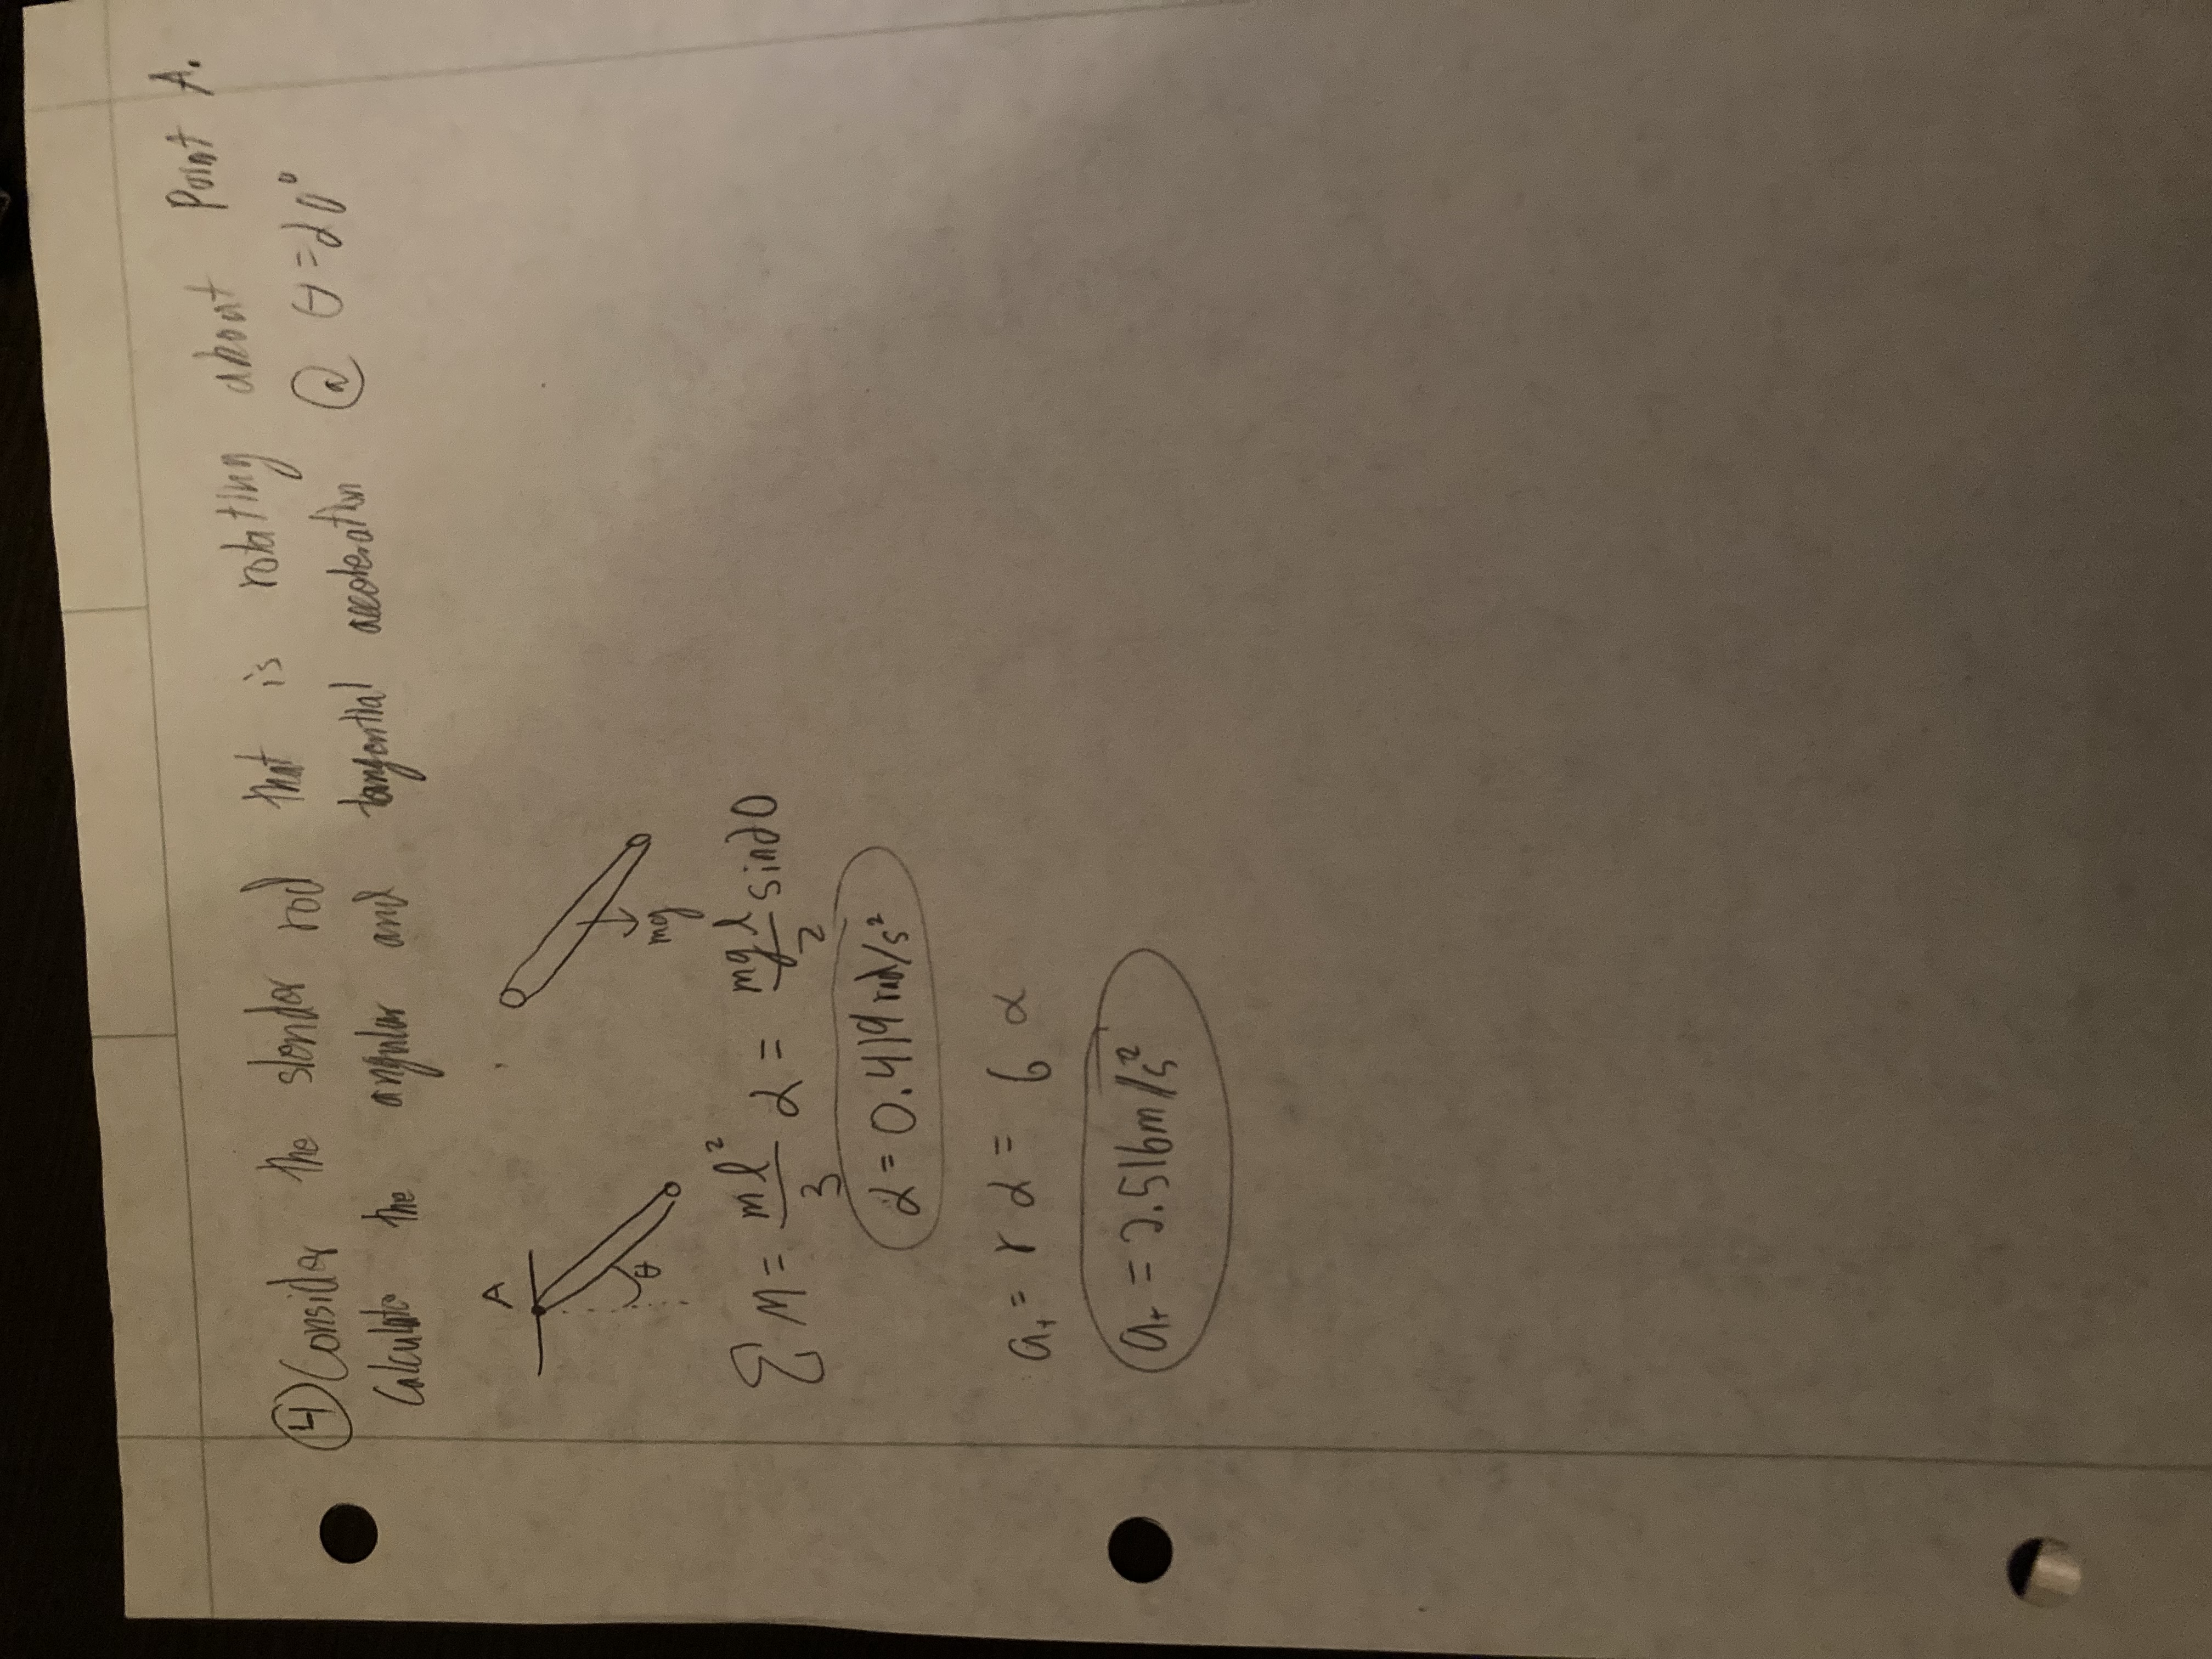 ④ Consider the slender rod that is rotating about Point A.
Calculate the angular and tangential acceleration @ θ=20°
A
θ
mg
ΣM = ml²/3 α = mgl/2 sin20
α = 0.419 rad/s²
a_t = r α = 6 α
a_t = 2.516m/s²